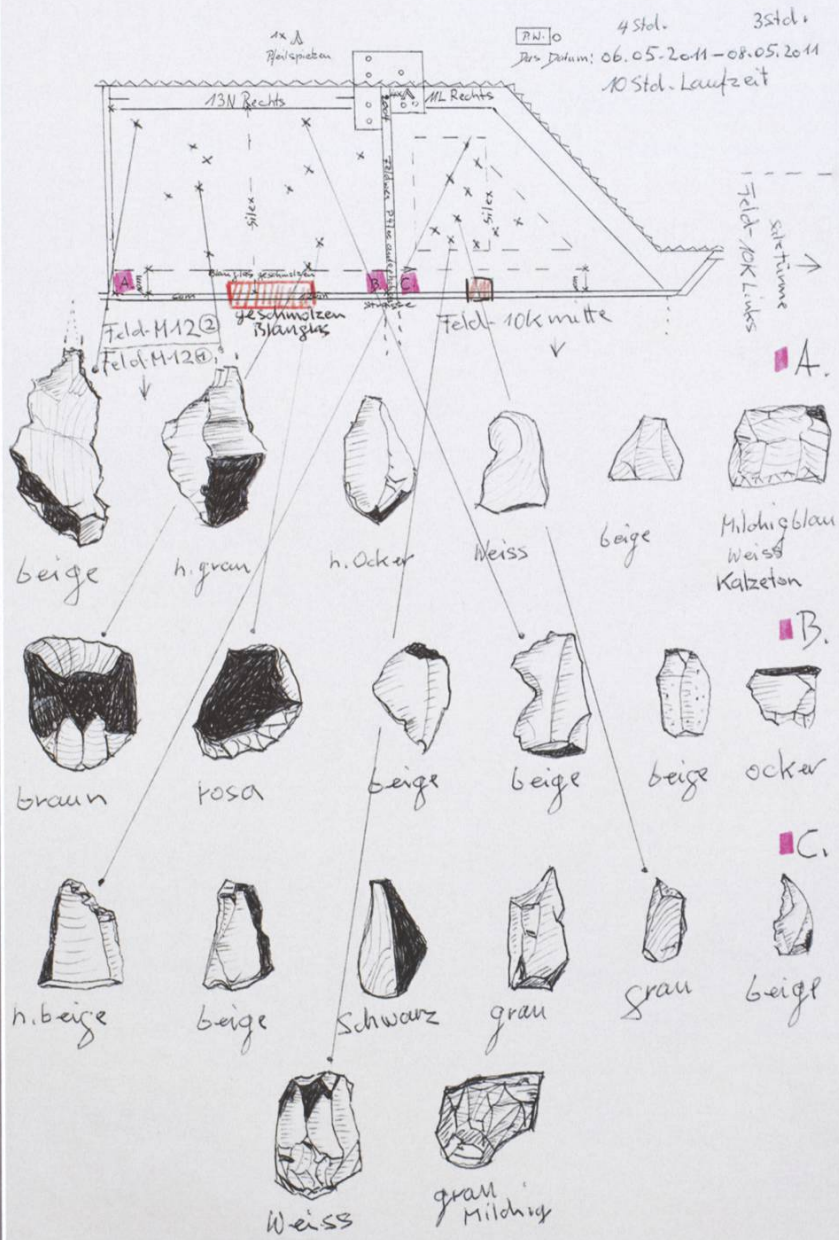 4 Std. 3 Std.
P.W.
Das Datum: 06.05.2011–08.05.2011
10 Std. Laufzeit
1x
Pfeilspitzen
13N Rechts
11L Rechts
Silex
Silex
Feld-10K Links
A
B
C
Blauglas geschmolzen
geschmolzen
Blauglas
strasse
Feld-M12②
Feld-M12①
Feld-10K mitte
A.
beige
h.grau
h.Ocker
Weiss
beige
Milchigblau
Weiss
Kalzeton
B.
braun
rosa
beige
beige
beige
ocker
C.
h.beige
beige
Schwarz
grau
grau
beige
Weiss
grau
Milchig